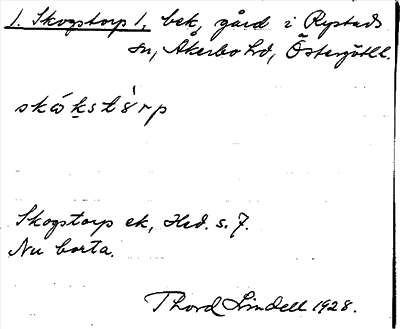 1. Skogstorp 1, bek, gård i Rystads
sn, Åkerbo hd, Östergötl.
skǒ́kstʊ̀rp
Skogstorp ek, Hrd. s. 7.
Nu borta.
Thord Lindell 1928.